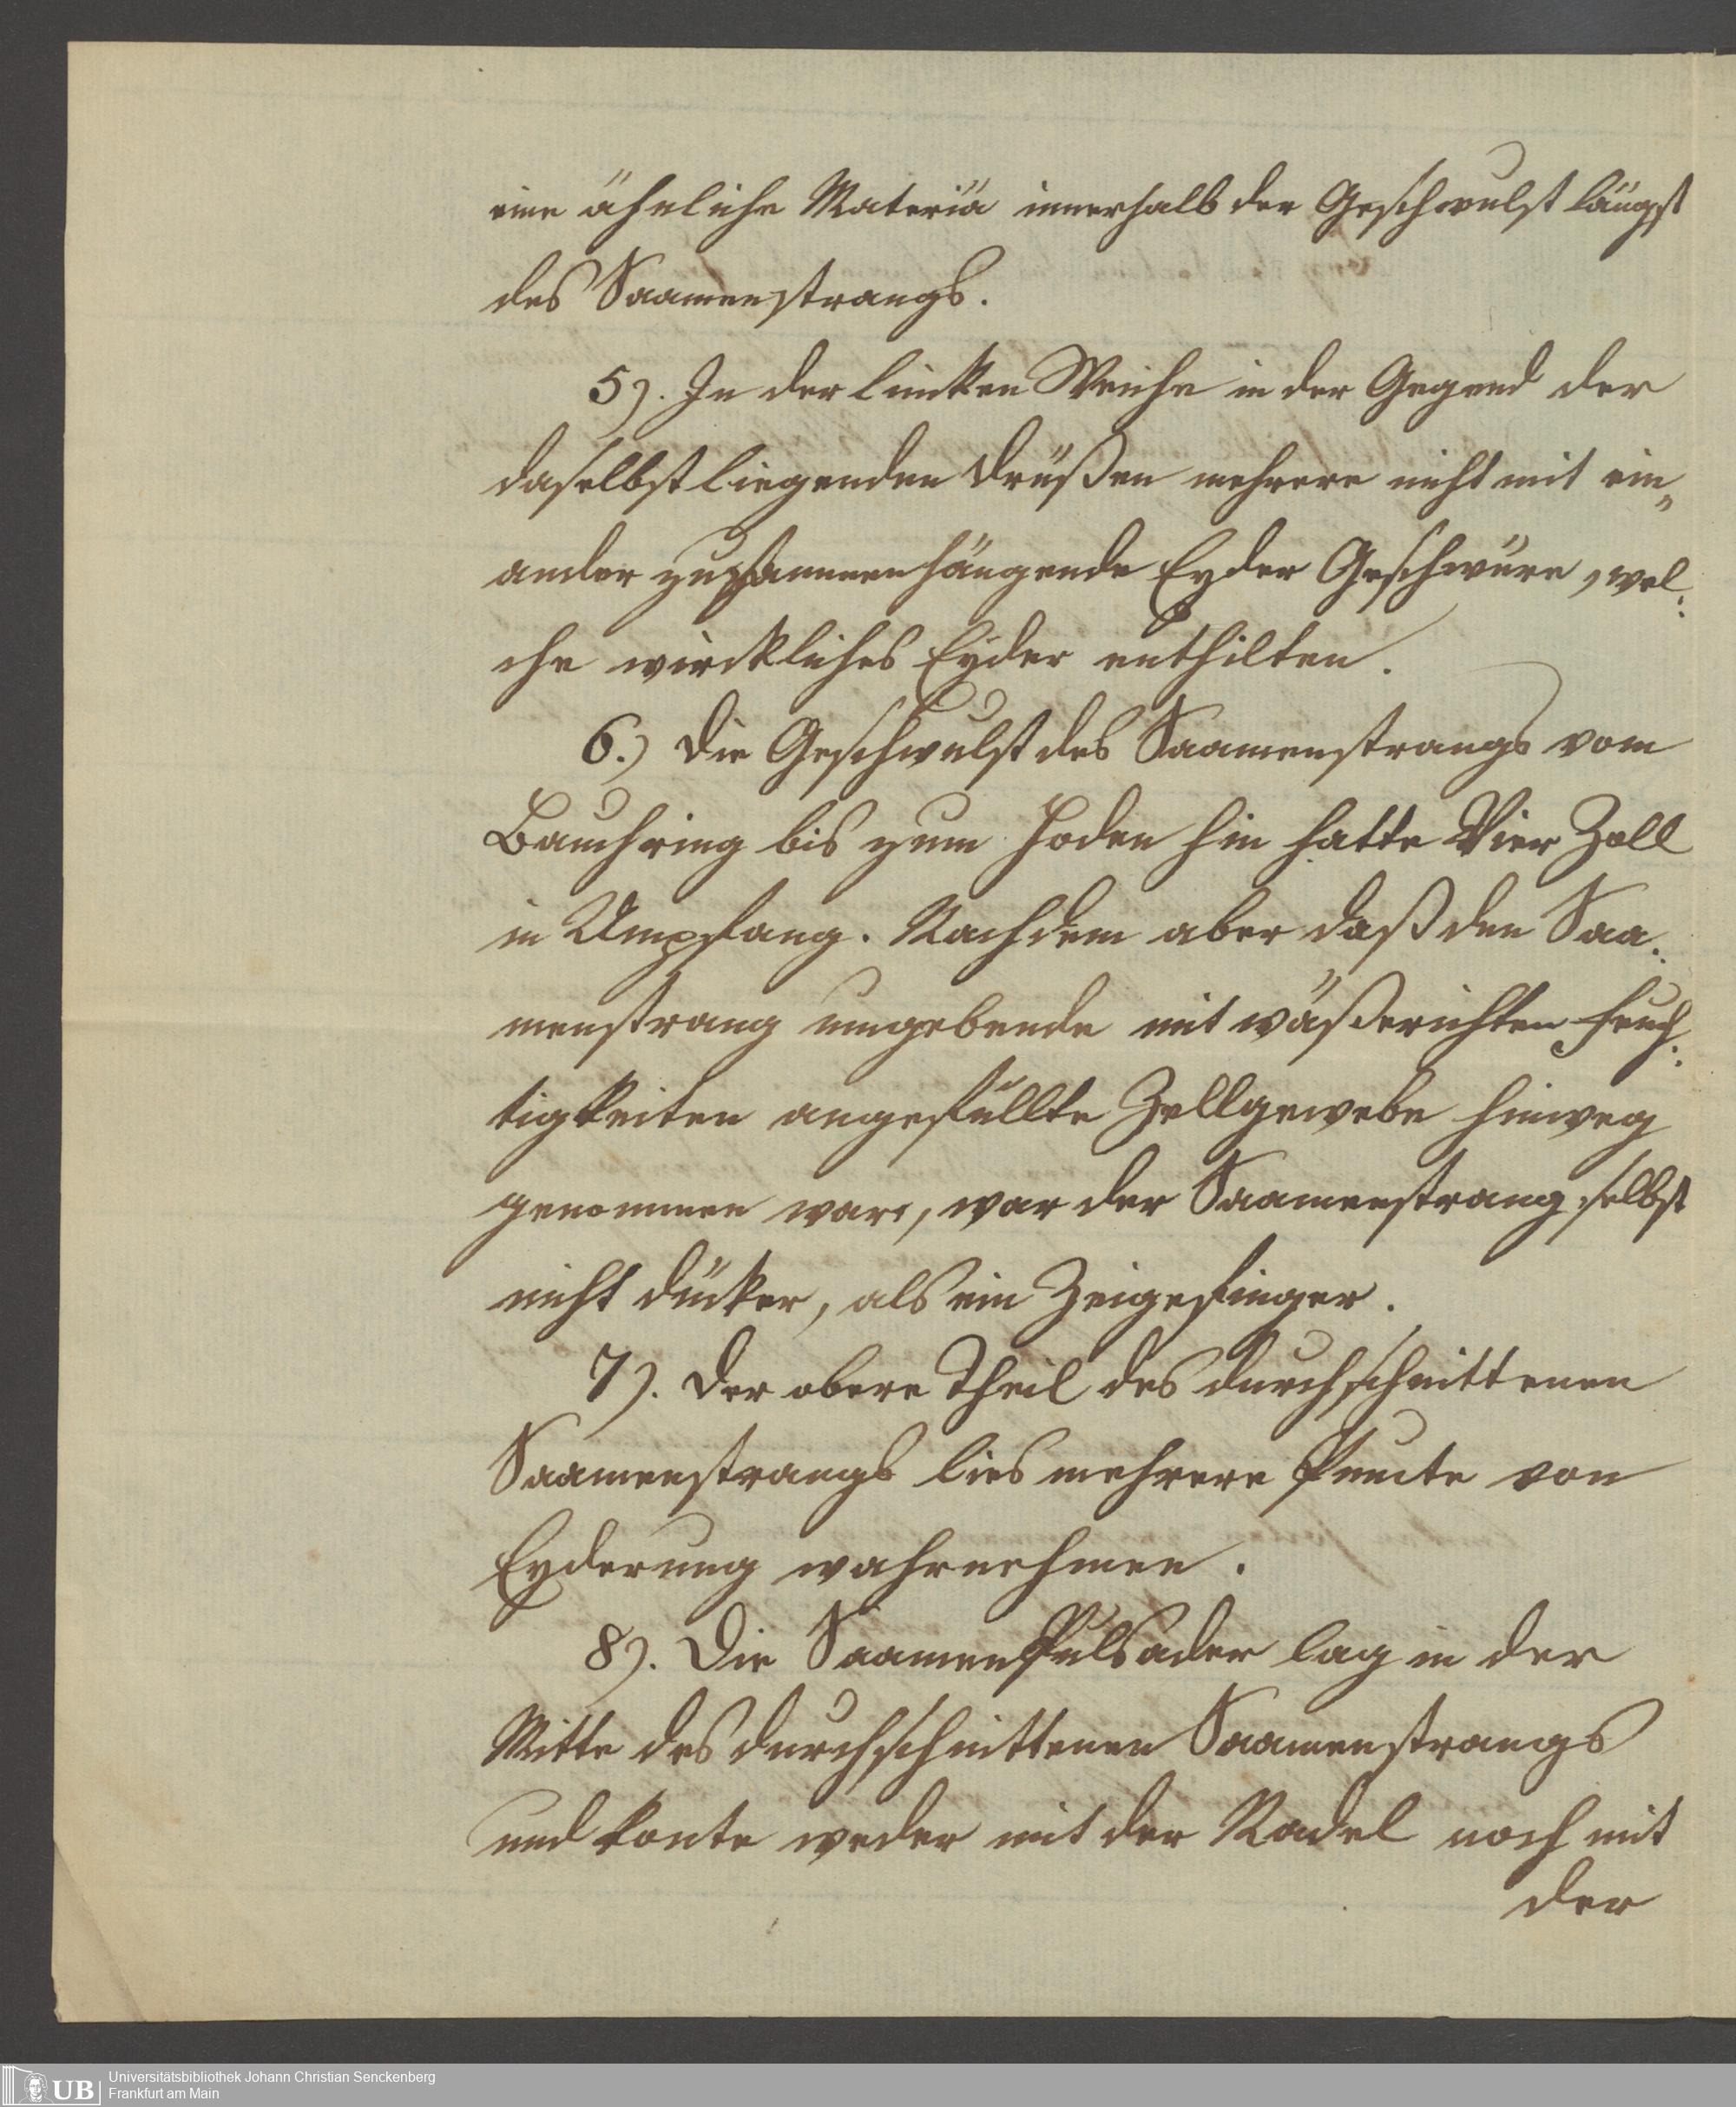 eine ähnliche Materiä innerhalb der Geschwulst längst
des Saamenstrangs.
5). In der lincken Weiche in der Gegend der
daselbst liegenden Drüßen mehrere nicht mit ein„
ander zusammenhängende Eyder Geschwüre, wel:
che wirckliches Eyder enthilten.
6.) Die Geschwulst des Saamenstrangs vom
Bauchring bis zum Hoden hin hatte Vier Zoll
in Umpfang. Nachdem aber daß den Saa:
menstrang umgebende mit wäßerichten Feuch:
tigkeiten angefüllte Zellgewebe hinweg
genommen ware, war der Saamenstrang selbst
nicht dücker, als ein Zeigefinger.
7). Der obere Theil des durchschnittenen
Saamenstrangs lies mehrere Puncte von
Eyderung wahrnehmen.
8). Die SaamenPulsader lag in der
Mitte des durchschnittenen Saamenstrangs
und konte weder mit der Nadel noch mit
der
UB
Universitätsbibliothek Johann Christian Senckenberg
Frankfurt am Main